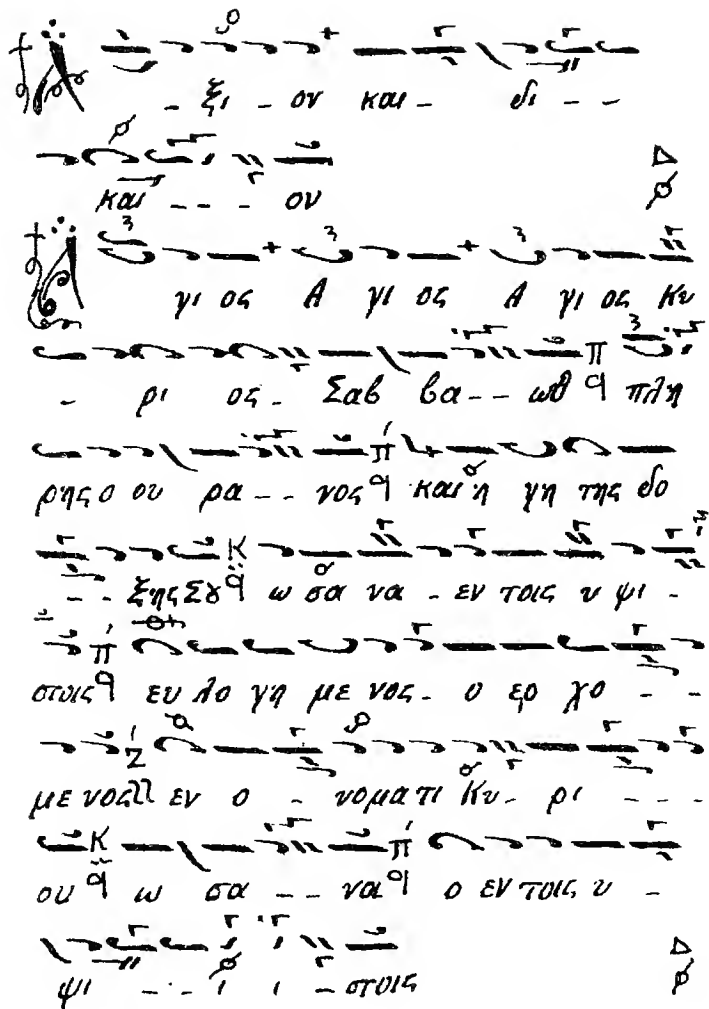 Α - ξι - ον και - δι - -
και - - - ον
Α γι ος Α γι ος Α γι ος Κυ
- ρι ος - Σαβ βα - - ωθ πλη
ρης ο ου ρα - - νος και η γη της δο
- - ξης Σȣ ω σα να - εν τοις υ ψι -
στοις ευ λο γη με νος - ο ερ χο - -
με νος εν ο - νομα τι Κυ - ρι - - -
ου ω σα - - να ο εν τοις υ -
ψι - - ι ι - στοις